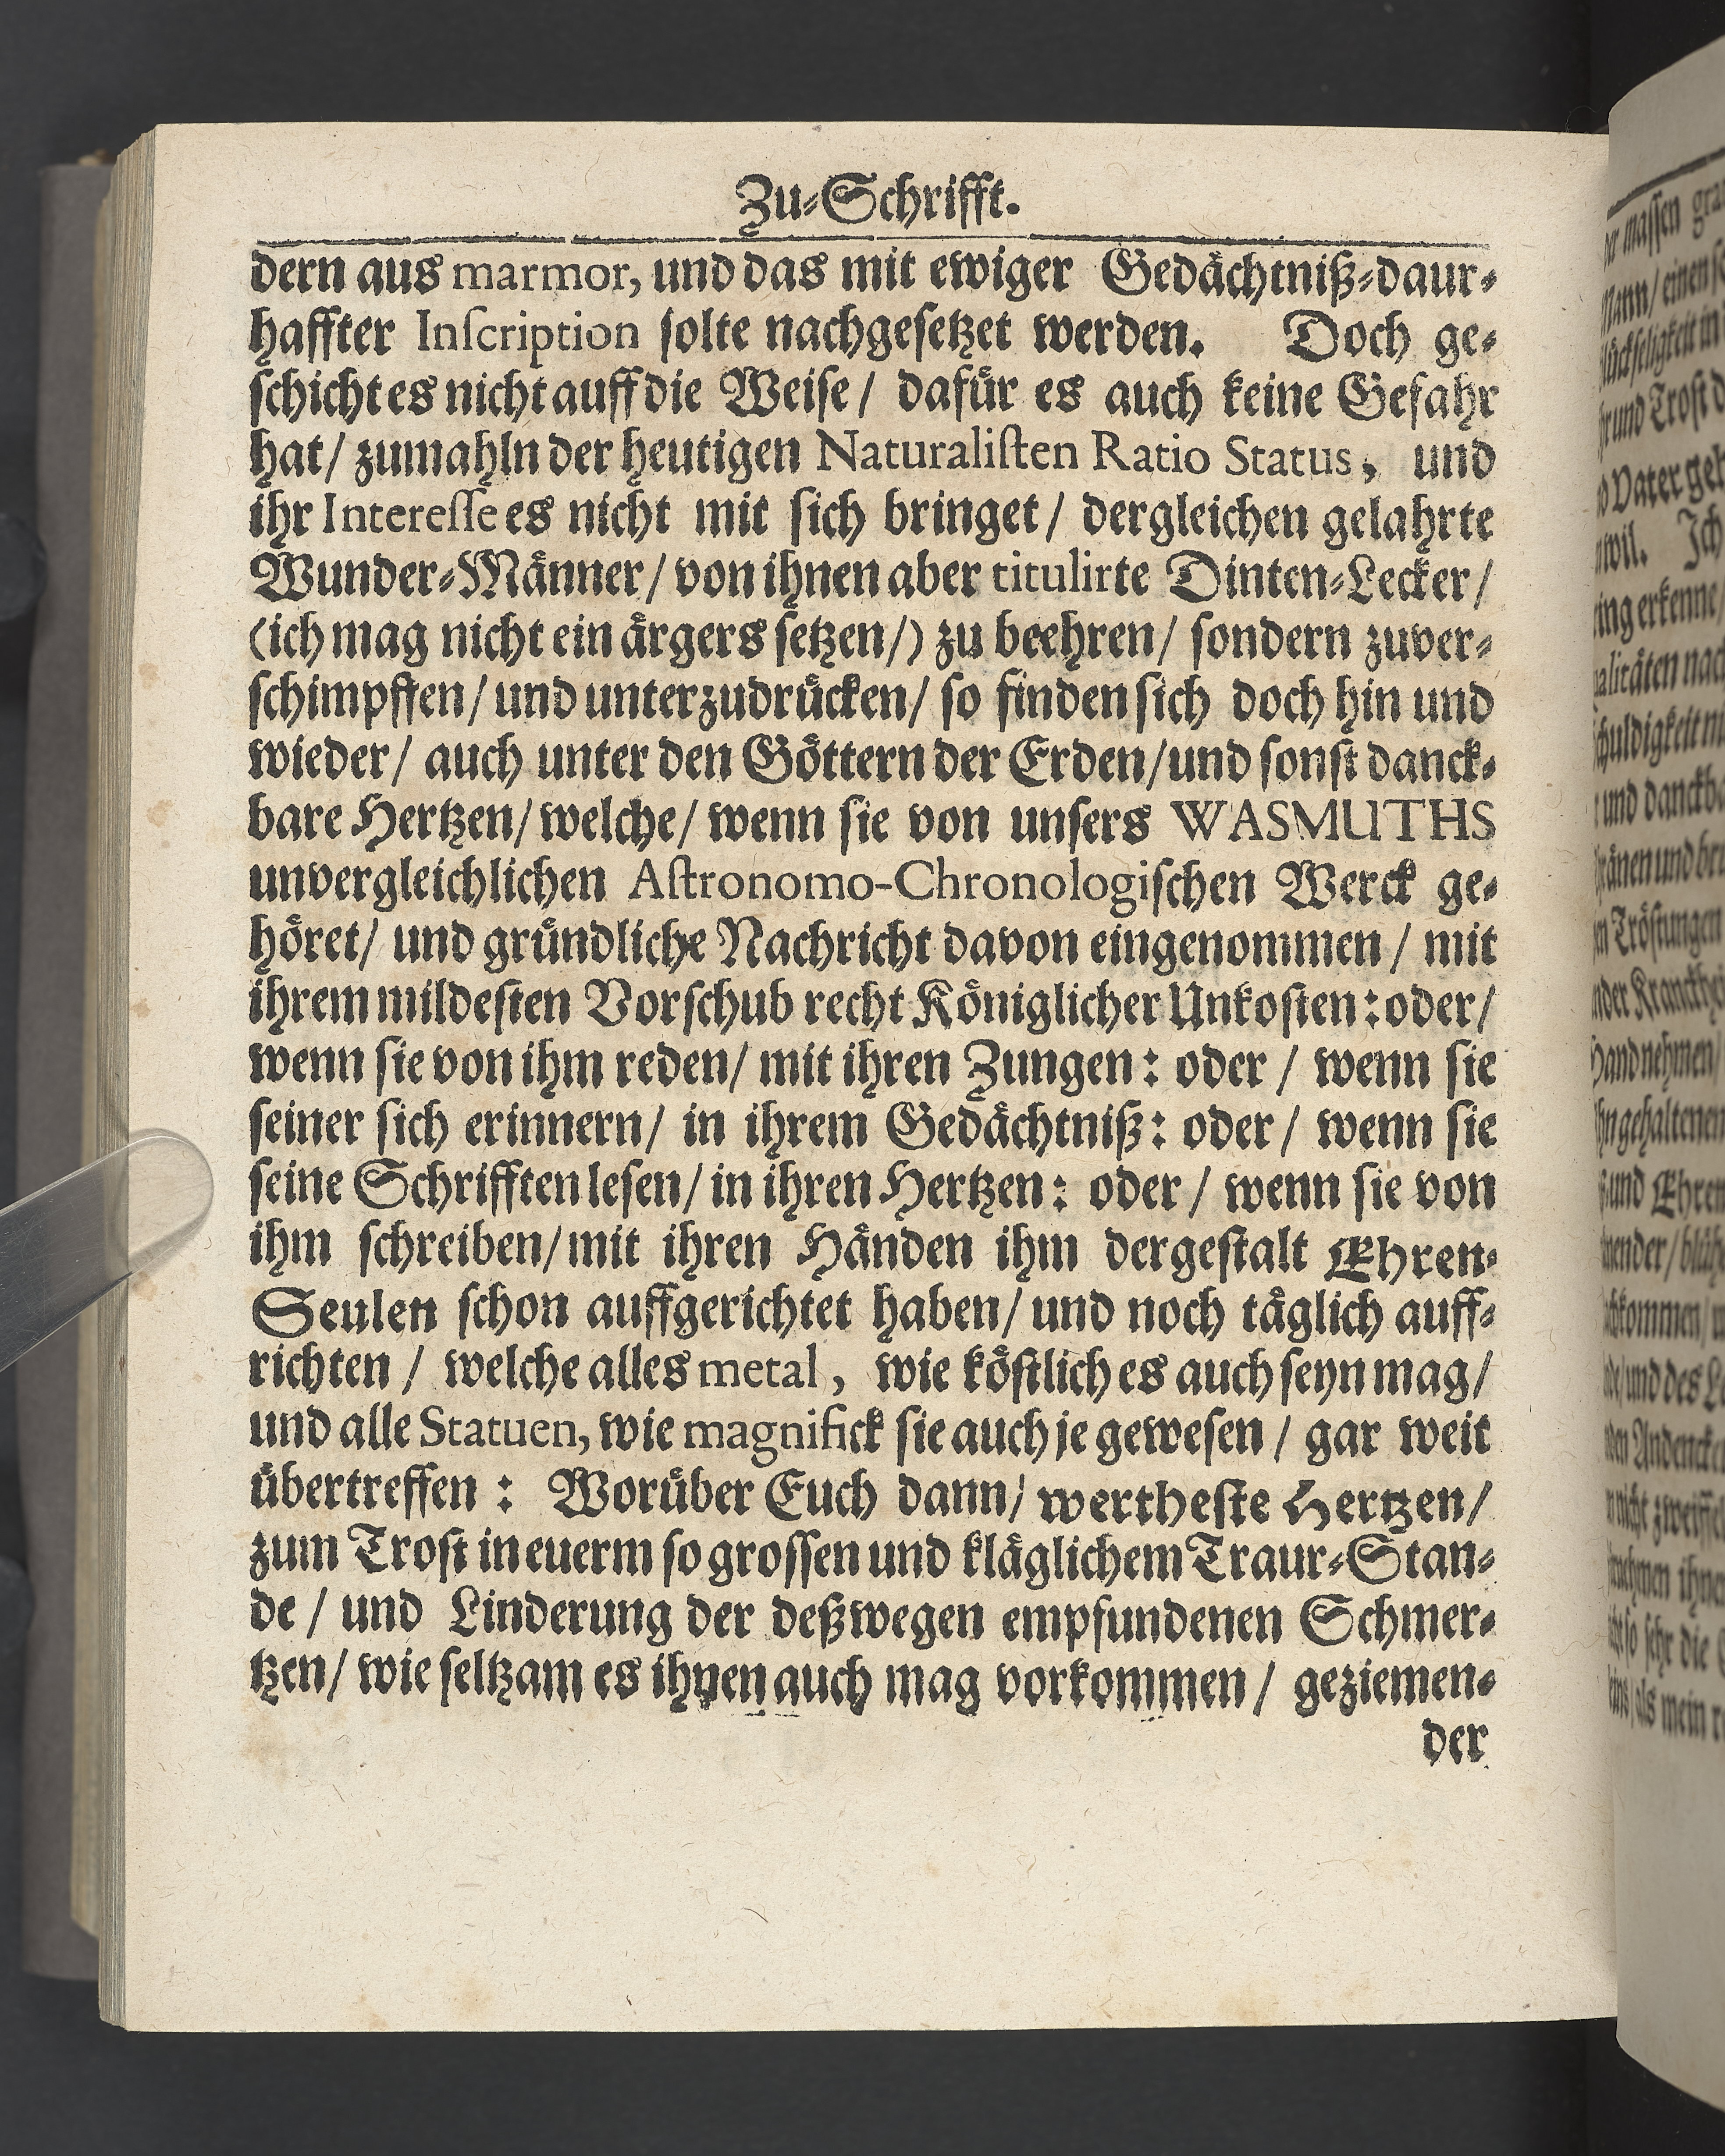 Zu-Schrifft.
dern aus marmor, und das mit ewiger Gedächtniß-daur-
haffter Inſcription ſolte nachgeſetzet werden. Doch ge-
ſchicht es nicht auff die Weiſe / dafür es auch keine Gefahr
hat / zumahln der heutigen Naturaliſten Ratio Status, und
ihr Intereſſe es nicht mit ſich bringet / dergleichen gelahrte
Wunder-Männer / von ihnen aber titulirte Dinten-Lecker /
(ich mag nicht ein ärgers ſetzen /) zu beehren / ſondern zuver-
ſchimpffen / und unterzudrücken / ſo finden ſich doch hin und
wieder / auch unter den Göttern der Erden / und ſonſt danck-
bare Hertzen / welche / wenn ſie von unſers WASMUTHS
unvergleichlichen Aſtronomo-Chronologiſchen Werck ge-
höret / und gründliche Nachricht davon eingenommen / mit
ihrem mildeſten Vorſchub recht Königlicher Unkoſten: oder /
wenn ſie von ihm reden / mit ihren Zungen: oder / wenn ſie
ſeiner ſich erinnern / in ihrem Gedächtniß: oder / wenn ſie
ſeine Schrifften leſen / in ihren Hertzen: oder / wenn ſie von
ihm ſchreiben / mit ihren Händen ihm dergeſtalt Ehren-
Seulen ſchon auffgerichtet haben / und noch täglich auff-
richten / welche alles metal, wie köſtlich es auch ſeyn mag /
und alle Statuen, wie magnifick ſie auch je geweſen / gar weit
übertreffen: Worüber Euch dann / wertheſte Hertzen /
zum Troſt in euerm ſo groſſen und kläglichem Traur-Stan-
de / und Linderung der deßwegen empfundenen Schmer-
tzen / wie ſeltzam es ihnen auch mag vorkommen / geziemen-
der